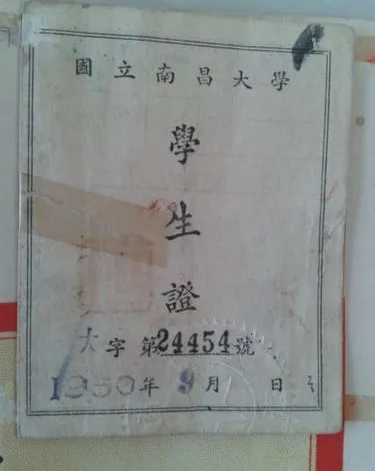 國立南昌大學
學
生
證
大字第24454號
1950年9月 日